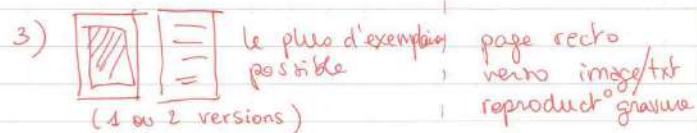 3)
le plus d'exemplaires
possible
(1 ou 2 versions)
page recto
verso image/txt
reproduct° gravure